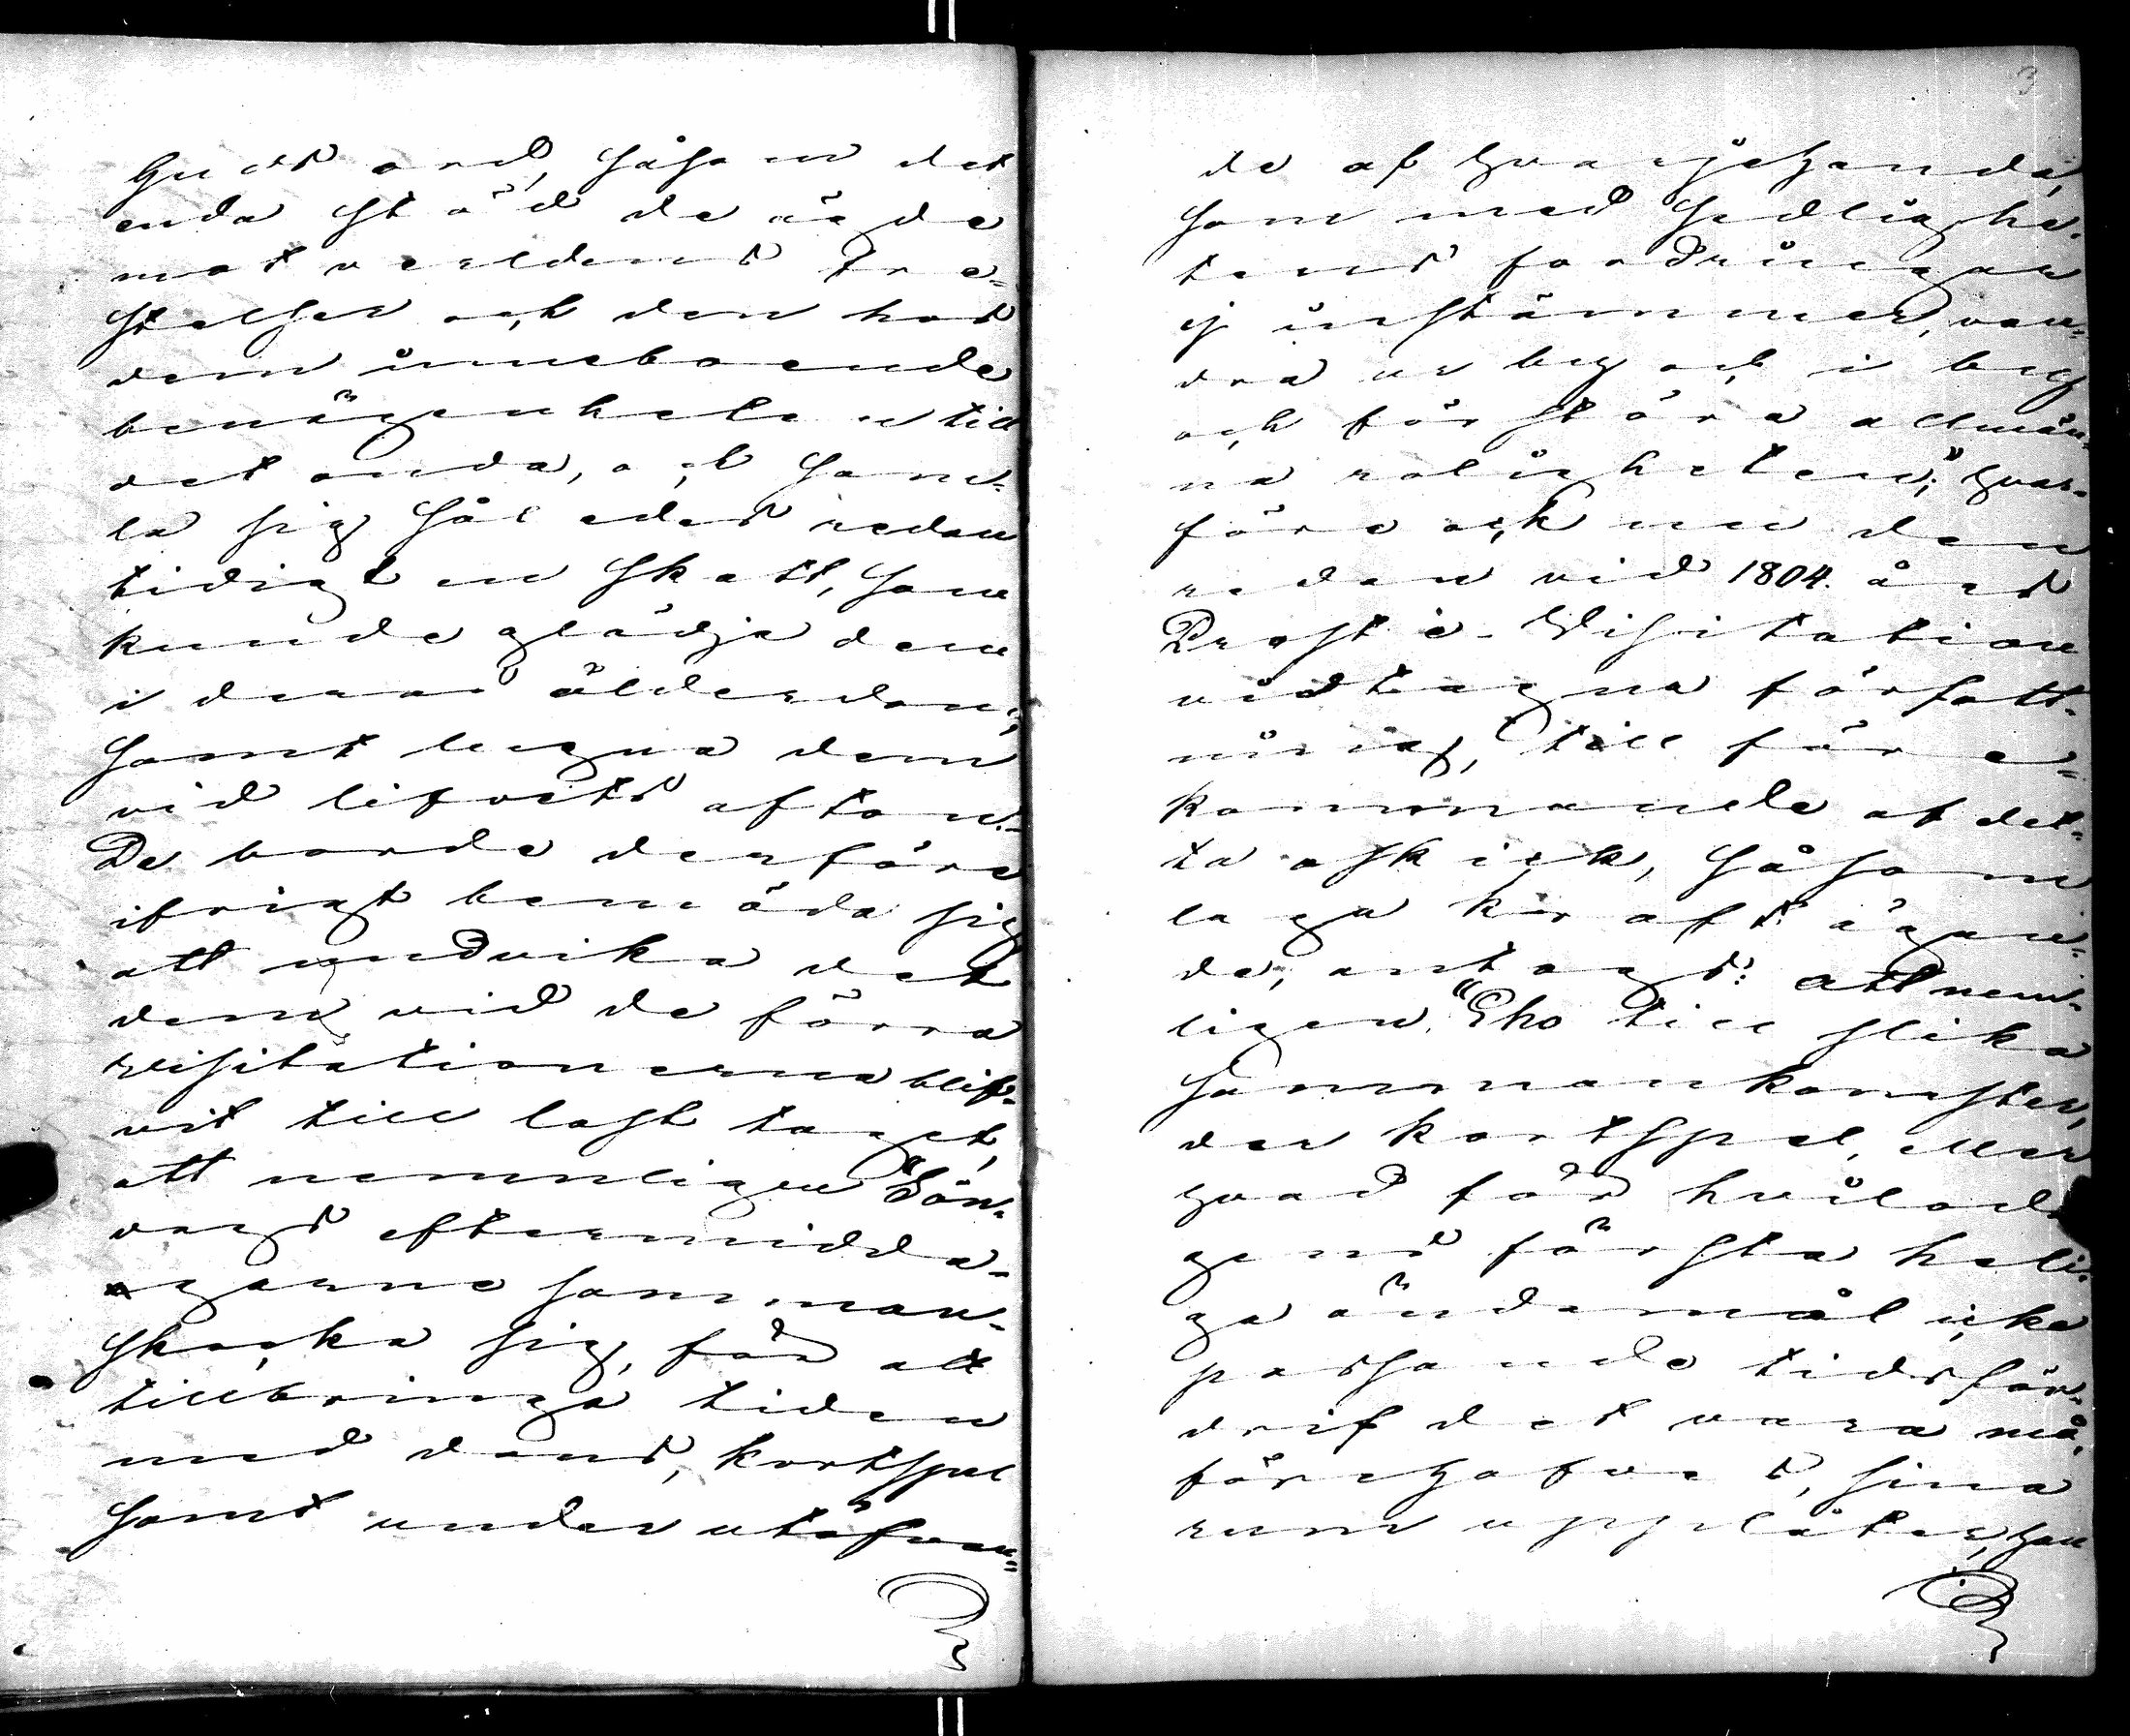 Guds ord, såsom det
enda stöd de ägde
mot verldens fre-
stelser och den hos
dem inneboende
benägenheten till
det onda, och sam-
la sig således redan
tidigt en skatt, som
kunde glädja dem
i deras ålderdom,
samt lugna dem
vid lifvets afton.
De borde derföre
ifrigt bemöda sig
att undvika det
dem vid de förra
visitationerna blif-
vit till last taget,
att nemnligen "Sön-
dags eftermidda-
garne samman-
skocka sig, för att
tillbringa tiden
med dans, kortspel
samt under utöfvan-
3
de af hvarjehanda,
som med sedlighe-
tens fordringar
ej instämmer, van-
dra ur by och i by
och förstöra allmän-
na roligheten;" hvar-
före ock nu den
redan vid 1804. års
Prosti-Visitation
vidtagna författ-
ning, till före-
kommande af det-
ta oskick, såsom
laga kraft ägan-
de, antags: att nem-
ligen, "Eho till slika
sammankomster,
der kortspel, eller
hvad för hviloda
gens första heli-
ga ändamål icke
passande tidsför-
drif det vara må,
förehafves, sina
rum upplåter, han